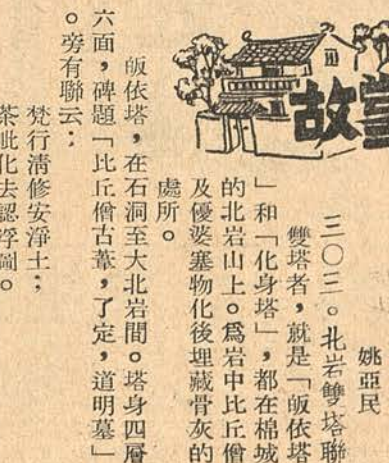 故
姚亞民
三〇三。北岩雙塔聯
雙塔者，就是「皈依塔
」和「化身塔」，都在棉城
的北岩山上。爲岩中比丘僧
及優婆塞物化後埋藏骨灰的
處所。
皈依塔，在石洞至大北岩間。塔身四層
六面，碑題「比丘僧古葦，了定，道明墓」
。旁有聯云：
梵行清修安淨土；
茶毗化去認浮圖。